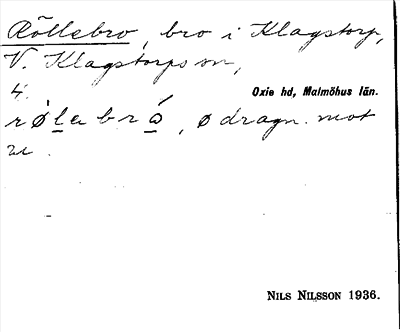 Röllebro, bro i Klagstorp,
V. Klagstorps sn,
4. Oxie hd, Malmöhus län.
røleabrå, ø dragn. mot
æ.
NILS NILSSON 1936.